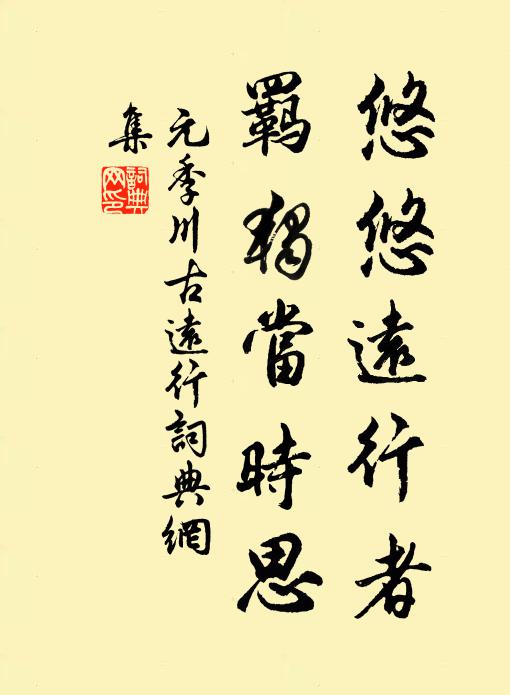 悠悠遠行者
羇獨當時思
元季川古遠行詞典網
集
詞典
网印